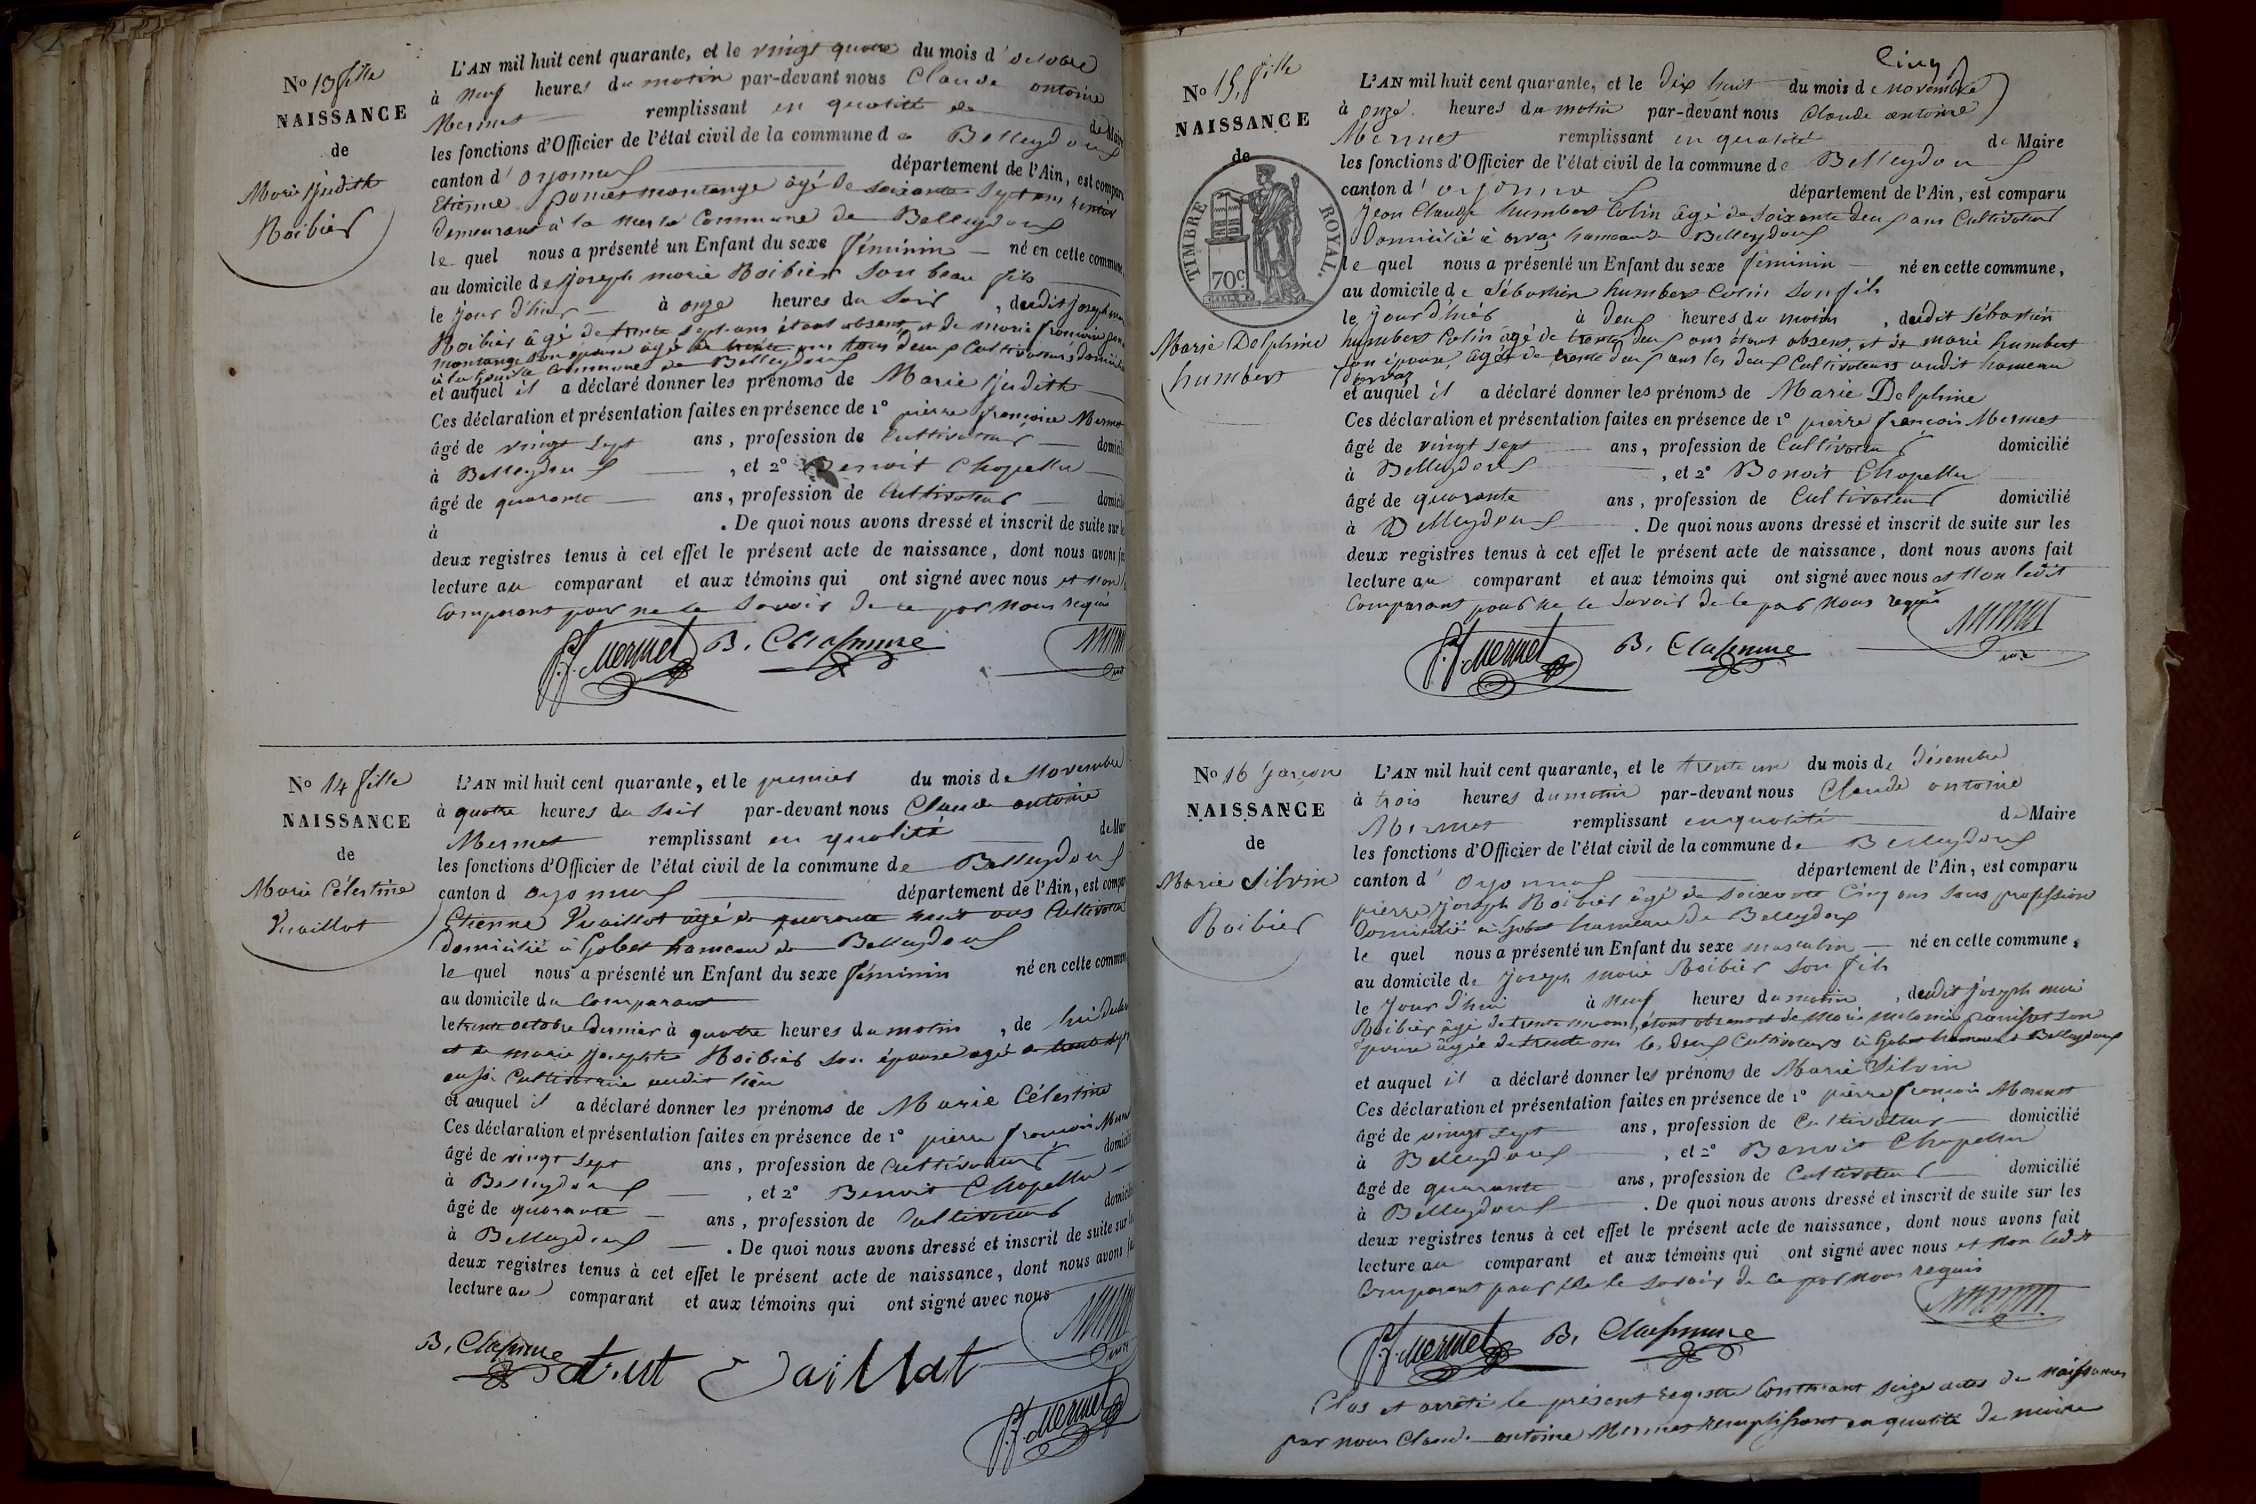 No 13 fille
NAISSANCE
de
Marie Judith
Roibier
L'AN mil huit cent quarante, et le vingt quatre du mois d'octobre
à neuf heures du matin par-devant nous Claude antoine
Mermet remplissant en qualité de Maire
les fonctions d'Officier de l'état civil de la commune de Belleydoux
canton d'oyonnax département de l'Ain, est comparu
Etienne poncet montange âgé de soixante sept ans rentier
demeurant à la commune de Belleydoux
le quel nous a présenté un Enfant du sexe féminin né en cette commune,
au domicile de joseph marie Roibier son beau fils
le jour d'hier à onze heures du soir, dudit joseph marie
Roibier âgé de trente sept ans étant absent, et de marie françoise poncet
montange son épouse âgée de trente ans tous deux Cultivateurs domiciliés
à la commune de Belleydoux
et auquel il a déclaré donner les prénoms de Marie Judith
Ces déclaration et présentation faites en présence de 1º pierre françois Mermet
âgé de vingt sept ans, profession de Cultivateur domicilié
à Belleydoux, et 2º Benoit Chapellu
âgé de quarante ans, profession de Cultivateur domicilié
à . De quoi nous avons dressé et inscrit de suite sur les
deux registres tenus à cet effet le présent acte de naissance, dont nous avons fait
lecture au comparant et aux témoins qui ont signé avec nous et non le
Comparant pour ne le savoir de ce par nous requis
P. f. Mermet B. Mermet
No 14 fille
NAISSANCE
de
Marie Célestine
Vuaillat
L'AN mil huit cent quarante, et le premier du mois de Novembre
à quatre heures du soir par-devant nous Claude antoine
Mermet remplissant en qualité de Maire
les fonctions d'Officier de l'état civil de la commune de Belleydoux
canton d oyonnax département de l'Ain, est comparu
Etienne Vuaillat âgé de quarante huit ans Cultivateur
domicilié à Gobet hameau de Belleydoux
le quel nous a présenté un Enfant du sexe féminin né en cette commune
au domicile du Comparant
le trente octobre dernier à quatre heures du matin, de lui déclarant
et de marie josephte Roibier son épouse agée de trente sept
aussi Cultivatrice audit lieu
et auquel il a déclaré donner les prénoms de Marie Célestine
Ces déclaration et présentation faites en présence de 1º pierre françois Mermet
âgé de vingt sept ans, profession de Cultivateur domicilié
à Belleydoux, et 2º Benoit Chapellu
âgé de quarante ans, profession de Cultivateur domicilié
à Belleydoux. De quoi nous avons dressé et inscrit de suite sur les
deux registres tenus à cet effet le présent acte de naissance, dont nous avons fait
lecture au comparant et aux témoins qui ont signé avec nous
B. Vaillat Mermet
P. f. Mermet
Cinq
No 15, fille
NAISSANCE
de
TIMBRE ROYAL.
70c
Marie Delphine
humbert
L'AN mil huit cent quarante, et le dix huit du mois de novembre
à onze heures du matin par-devant nous Claude antoine
Mermet remplissant en qualité de Maire
les fonctions d'Officier de l'état civil de la commune de Belleydoux
canton d'oyonnax département de l'Ain, est comparu
Jean Claude humbert Colin âgé de soixante deux ans Cultivateur
domicilié à orvaz hameau de Belleydoux
le quel nous a présenté un Enfant du sexe féminin né en cette commune,
au domicile de Sébastien humbert Colin son fils
le jour d'hier à deux heures du matin, dudit Sébastien
humbert Colin âgé de trente deux ans étant absent, et de marie humbert
son épouse, âgée de trente deux ans les deux Cultivateurs audit hameau
d'orvaz
et auquel il a déclaré donner les prénoms de Marie Delphine
Ces déclaration et présentation faites en présence de 1º pierre françois Mermet
âgé de vingt sept ans, profession de Cultivateur domicilié
à Belleydoux, et 2º Benoit Chapellu
âgé de quarante ans, profession de Cultivateur domicilié
à Belleydoux. De quoi nous avons dressé et inscrit de suite sur les
deux registres tenus à cet effet le présent acte de naissance, dont nous avons fait
lecture au comparant et aux témoins qui ont signé avec nous et non ledit
Comparant pour ne le savoir de ce par nous requis
P. f. Mermet B. Mermet
No 16 Garçon
NAISSANCE
de
Marie Silvin
Roibier
L'AN mil huit cent quarante, et le trente un du mois de Désembre
à trois heures du matin par-devant nous Claude antoine
Mermet remplissant en qualité de Maire
les fonctions d'Officier de l'état civil de la commune de Belleydoux
canton d'Oyonnax département de l'Ain, est comparu
pierre joseph Roibier âgé de soixante cinq ans sans profession
Domicilié à Gobet hameau de Belleydoux
le quel nous a présenté un Enfant du sexe masculin né en cette commune,
au domicile de joseph marie Roibier son fils
le Jour d'hui à neuf heures du matin, dudit joseph marie
Roibier âgé de trente ans, étant absent et de Marie melanie son
épouse âgée de trente ans les deux Cultivateurs à Gobet hameau de Belleydoux
et auquel il a déclaré donner les prénoms de Marie Silvin
Ces déclaration et présentation faites en présence de 1º pierre françois Mermet
âgé de vingt sept ans, profession de Cultivateur domicilié
à Belleydoux, et 2º Benoit Chapellu
âgé de quarante ans, profession de Cultivateur domicilié
à Belleydoux. De quoi nous avons dressé et inscrit de suite sur les
deux registres tenus à cet effet le présent acte de naissance, dont nous avons fait
lecture au comparant et aux témoins qui ont signé avec nous et non ledit
Comparant pour ne le savoir de ce par nous requis
P. f. Mermet B. Mermet
Clos et arrêté le présent registre Contenant seize actes de naissances
par nous Claude antoine Mermet remplissant en qualité de maire